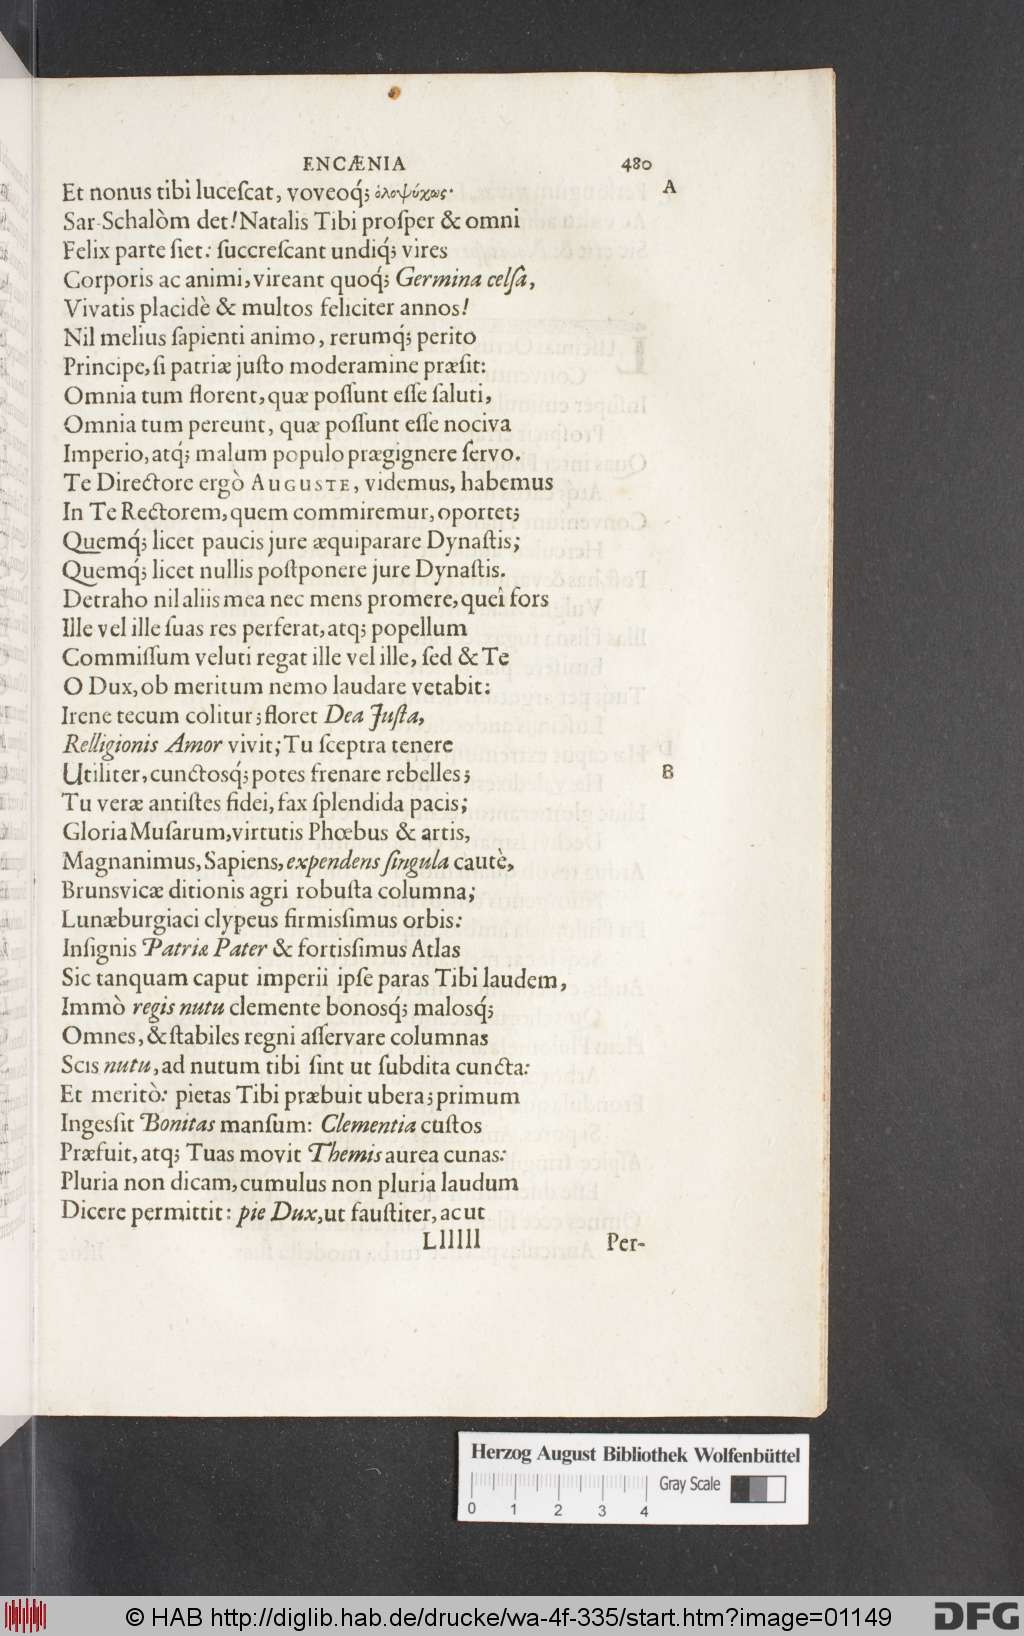 ENCÆNIA 480
Et nonus tibi luceſcat, voveoq́; ὁλοψύχως· A
Sar-Schalòm det! Natalis Tibi proſper & omni
Felix parte ſiet: ſuccreſcant undiq́; vires
Corporis ac animi, vireant quoq́; Germina celſa,
Vivatis placidè & multos feliciter annos!
Nil melius ſapienti animo, rerumq́; perito
Principe, ſi patriæ juſto moderamine præſit:
Omnia tum florent, quæ poſſunt eſſe ſaluti,
Omnia tum pereunt, quæ poſſunt eſſe nociva
Imperio, atq́; malum populo prægignere ſervo.
Te Directore ergò AUGUSTE, videmus, habemus
In Te Rectorem, quem commiremur, oportet;
Quemq́; licet paucis jure æquiparare Dynaſtis;
Quemq́; licet nullis poſtponere jure Dynaſtis.
Detraho nil aliis mea nec mens promere, queî fors
Ille vel ille ſuas res perferat, atq; popellum
Commiſſum veluti regat ille vel ille, ſed & Te
O Dux, ob meritum nemo laudare vetabit:
Irene tecum colitur; floret Dea Juſta,
Relligionis Amor vivit; Tu ſceptra tenere
Utiliter, cunctosq́; potes frenare rebelles; B
Tu veræ antiſtes fidei, fax ſplendida pacis;
Gloria Muſarum, virtutis Phœbus & artis,
Magnanimus, Sapiens, expendens ſingula cautè,
Brunsvicæ ditionis agri robuſta columna;
Lunæburgiaci clypeus firmisſimus orbis:
Inſignis Patriæ Pater & fortisſimus Atlas
Sic tanquam caput imperii ipſe paras Tibi laudem,
Immò regis nutu clemente bonosq́; malosq́;
Omnes, & ſtabiles regni aſſervare columnas
Scis nutu, ad nutum tibi ſint ut ſubdita cuncta:
Et meritò: pietas Tibi præbuit ubera; primum
Ingesſit Bonitas manſum: Clementia cuſtos
Præfuit, atq; Tuas movit Themis aurea cunas:
Pluria non dicam, cumulus non pluria laudum
Dicere permittit: pie Dux, ut fauſtiter, ac ut
Llllll Per-
Herzog August Bibliothek Wolfenbüttel
Gray Scale
0 1 2 3 4
© HAB http://diglib.hab.de/drucke/wa-4f-335/start.htm?image=01149 DFG